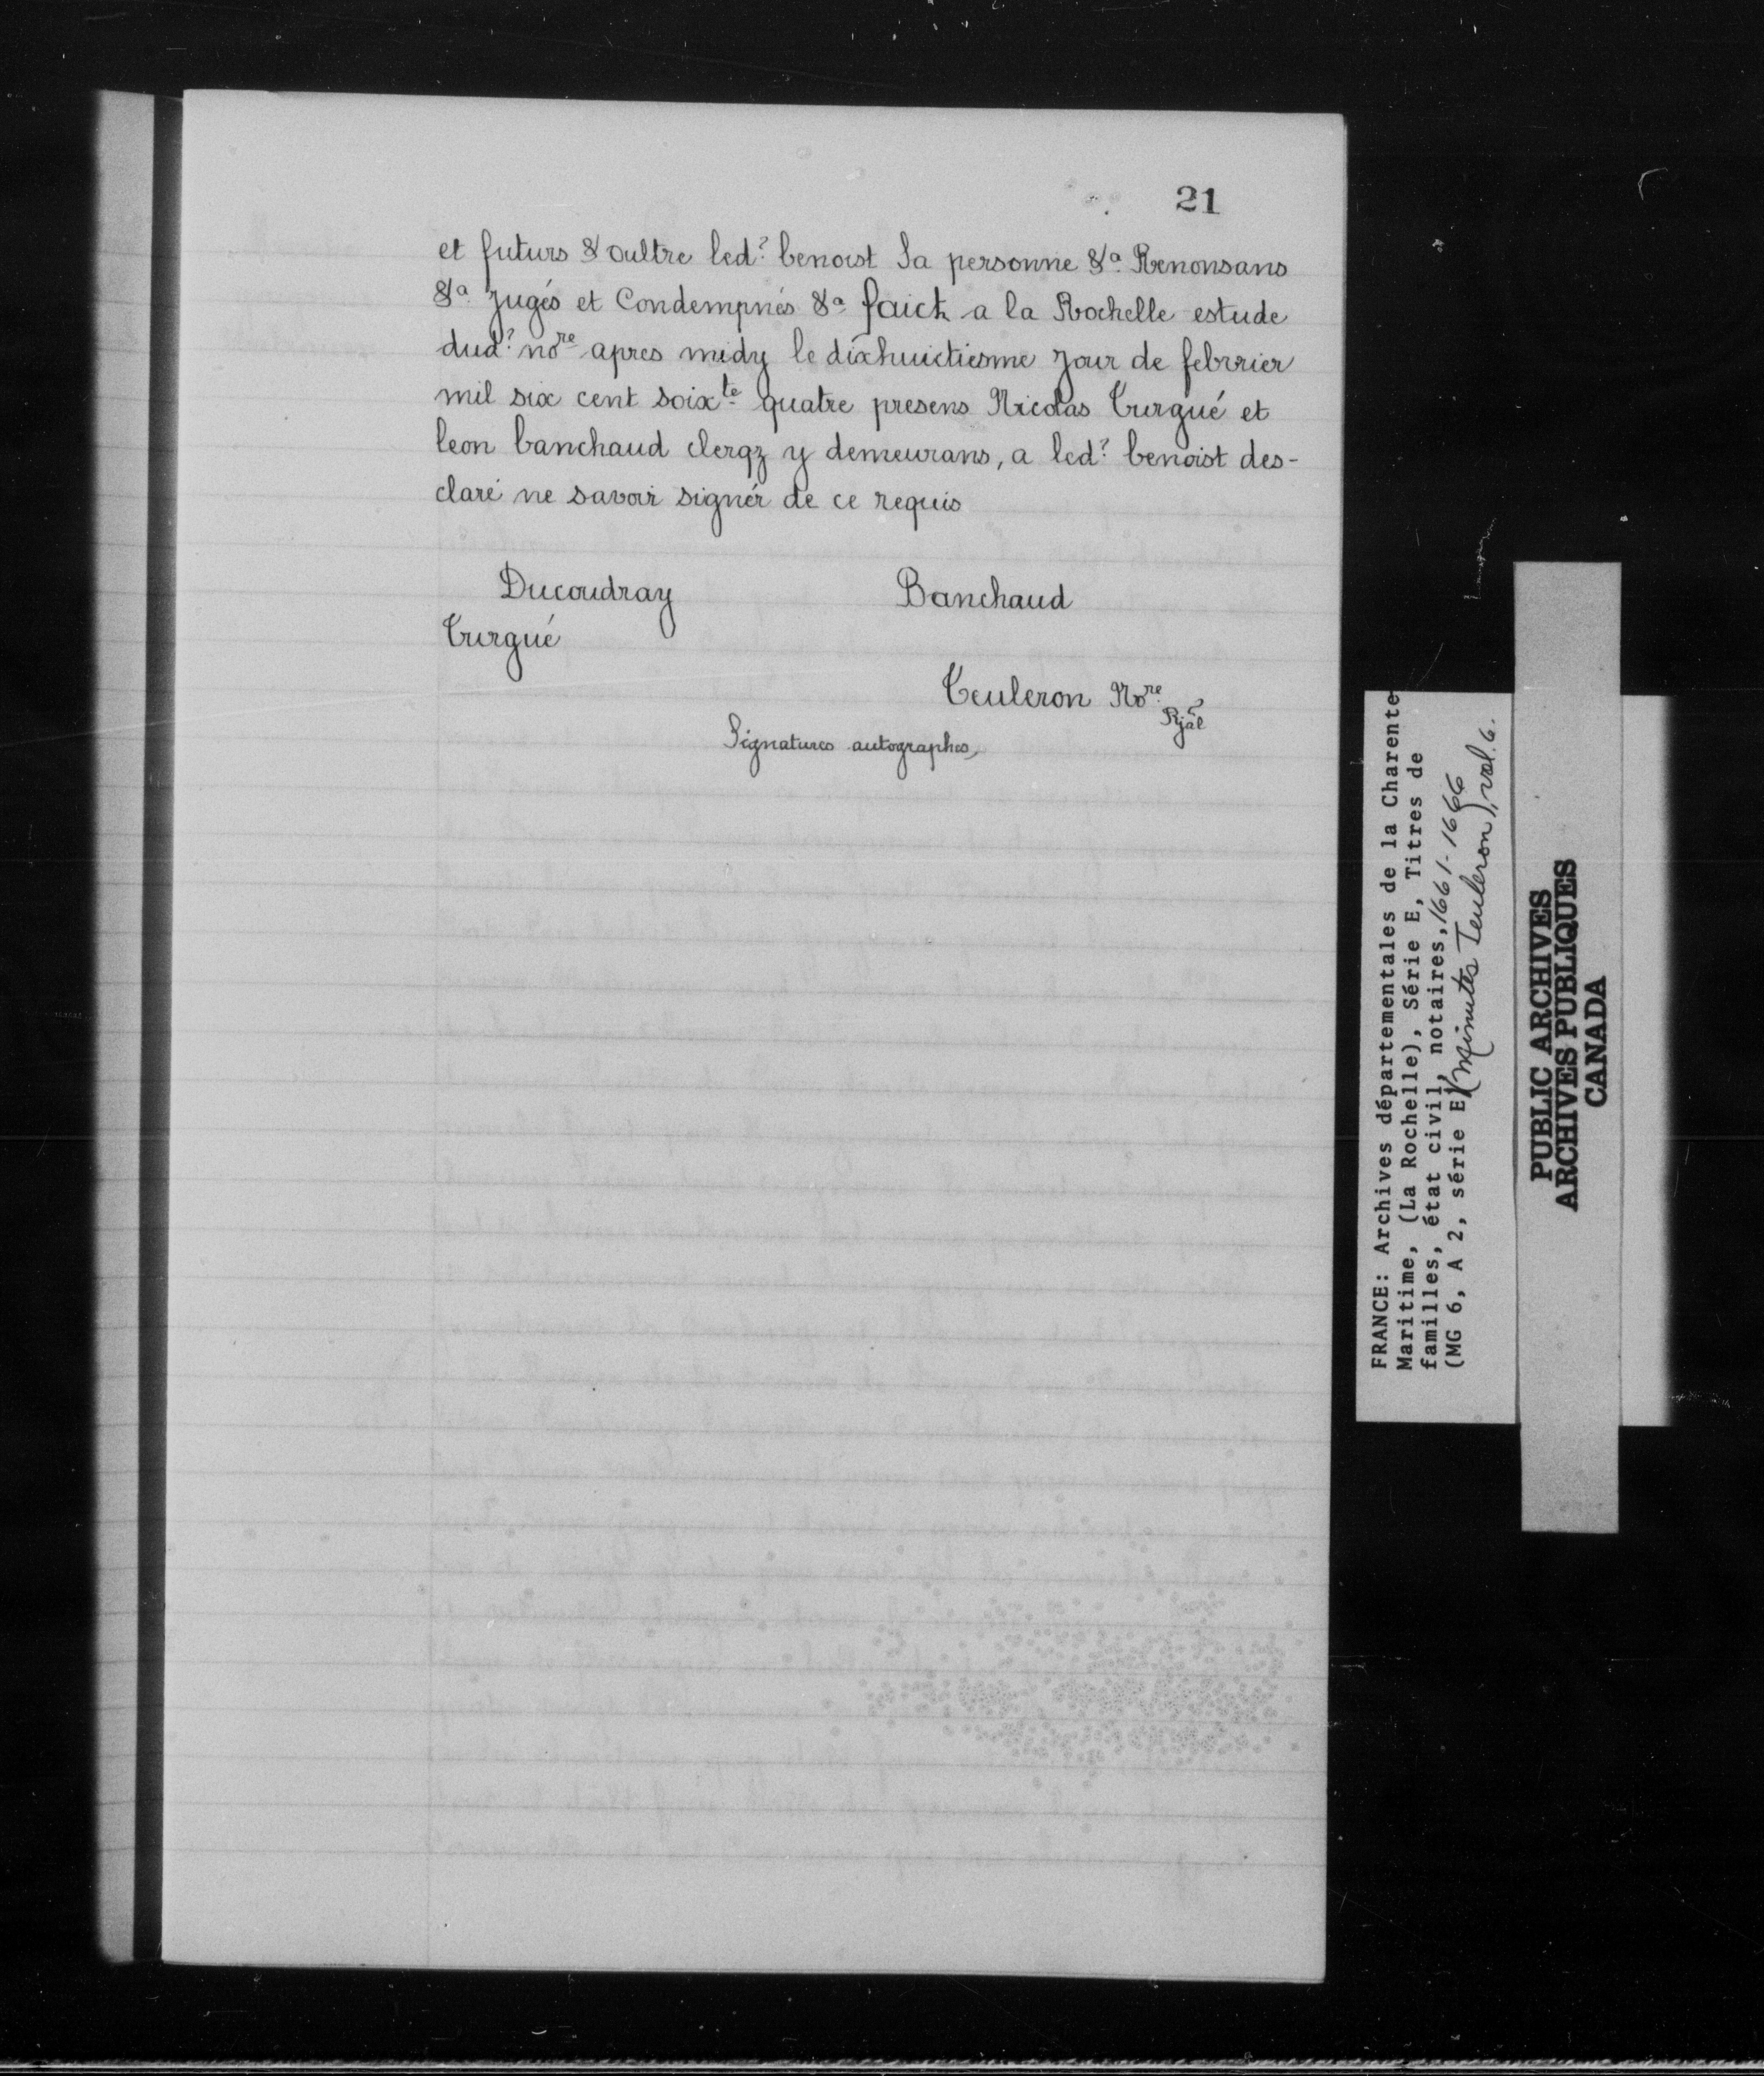 21
et futurs & oultre led? benoist Sa personne &a Renonsans
&a Jugés et Condempnés &a faict a la Rochelle estude
dud? nore apres midy le dixhuictiesme Jour de febvrier
mil six cent soixte quatre presens Nicolas Turgué et
leon banchaud clergz y demeurans, a led? benoist des-
claré ne savoir signér de ce requis
Ducoudray Banchaud
Turgué
Teuleron Nore
Rjal
Signatures autographes,
FRANCE: Archives départementales de la Charente
Maritime, (La Rochelle), Série E, Titres de
familles, état civil, notaires, 1661-1666
(MG 6, A 2, série E) (Minutes Teuleron), vol. 6.
PUBLIC ARCHIVES
ARCHIVES PUBLIQUES
CANADA